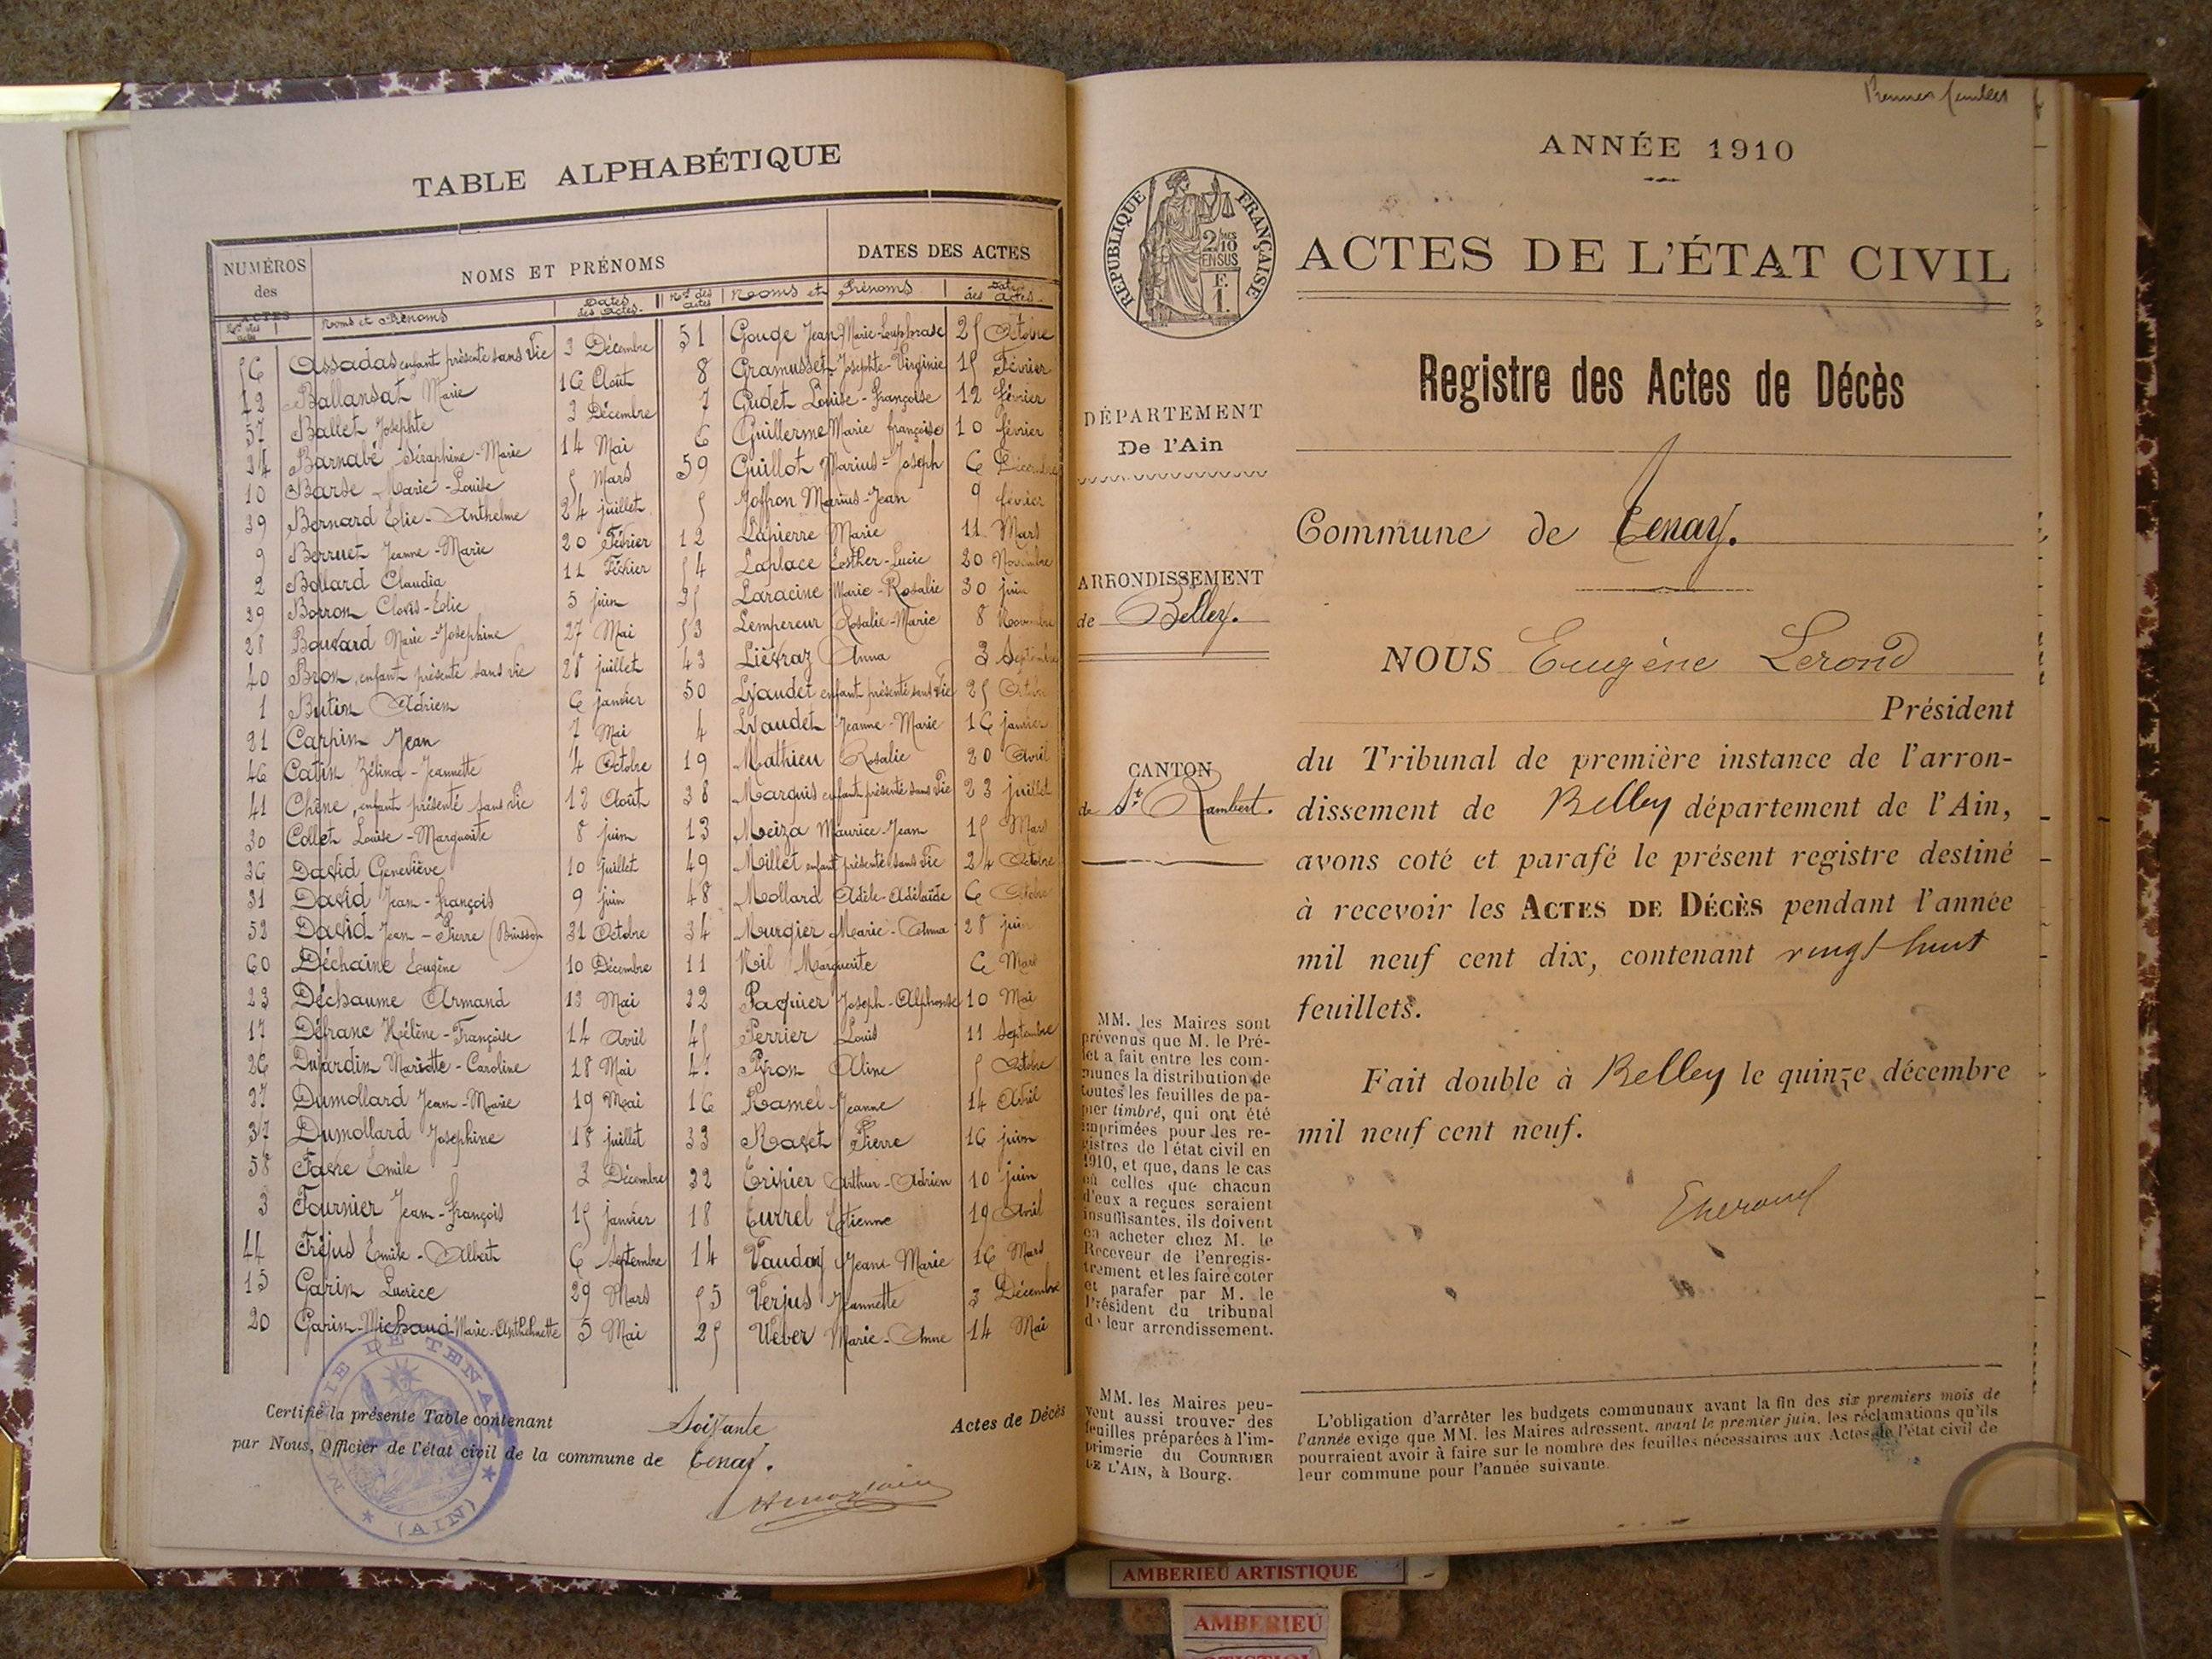 TABLE ALPHABÉTIQUE
NUMÉROS des ACTES
NOMS ET PRÉNOMS
DATES DES ACTES
Nos des actes Noms et Prénoms Dates des Actes. Nos des actes Noms et Prénoms Dates des actes.
56 Assadas enfant présenté sans vie 3 Décembre
42 Ballansat Marie 16 Août
57 Ballet Josephte 3 Décembre
24 Barnabé Séraphine-Marie 14 Mai
10 Barse Marie-Louise 5 Mars
39 Bernard Elie-Anthelme 24 juillet
9 Berruet Jeanne-Marie 20 Février
2 Bollard Claudia 11
29 Borron Clovis-Elie 5 juin
28 Bouvard Marie-Josephine 27 Mai
40 Bron, enfant présenté sans vie 28 juillet
1 Butin Adrien 6 janvier
21 Carpin Jean 7 Mai
46 Catin Zélina-Jeannette 4 Octobre
41 Chêne, enfant présenté sans vie 12 Août
30 Collet Louise-Marguerite 8 juin
36 David Geneviève 10 juillet
31 David Jean-François 9 juin
52 David Jean-Pierre (Brisson) 31 Octobre
60 Déchaine Eugène 10 Décembre
23 Déchaume Armand 13 Mai
17 Défranc Hélène-Françoise 14 Avril
26 Dujardin Mariette-Caroline 18 Mai
27 Dumollard Jean-Marie 19 Mai
37 Dumollard Josephine 18 juillet
58 Favre Emile 3 Décembre
3 Fournier Jean-François 15 janvier
44 Fréjus Emile-Albert 6 Septembre
15 Garin Lucrèce 29 Mars
20 Garin-Michaud Marie-Anthelmette 5 Mai
51 Gouge Jean-Marie 25 Octobre
8 Gramusset Josephte-Virginie 15 Février
7 Gudet Louise-Françoise 12 février
6 Guillerme Marie françoise 10 février
59 Guillot Marius-Joseph 6 Décembre
5 Joffron Marius-Jean 9 février
12 Lapierre Marie 11 Mars
54 Laplace Esther-Lucie 20 Novembre
35 Laracine Marie-Rosalie 30 juin
53 Lempereur Rosalie-Marie 8 Novembre
43 Liévraz Anna 3 Septembre
50 Lyaudet enfant présenté sans vie 25 Octobre
4 Lyaudet Jeanne-Marie 16 janvier
19 Mathieu Rosalie 20 Avril
38 Marquis enfant présenté sans vie 23 juillet
13 Meiza Maurice-Jean 15 Mars
49 Millet enfant présenté sans vie 24 Octobre
48 Mollard Adèle-Adélaïde 6 Octobre
34 Murgier Marie-Anna 28 juin
11 Nil Marguerite 6 Mars
22 Paquier Joseph-Alphonse 10 Mai
45 Perrier Louis 11 Septembre
47 Pyron Aline 5 Octobre
16 Ramel Jeanne 14 Avril
33 Ravet Pierre 16 juin
32 Tripier Arthur-Adrien 10 juin
18 Turrel Etienne 19 Avril
14 Vaudoy Jean-Marie 16 Mars
55 Verjus Jeannette 3 Décembre
25 Weber Marie-Anne 14 Mai
Certifié la présente Table contenant Soixante Actes de Décès
par Nous, Officier de l'état civil de la commune de Tenay.
MAIRIE DE TENAY
★ (AIN) ★
ANNÉE 1910
RÉPUBLIQUE FRANÇAISE
2/10 EN SUS
F. 1.
ACTES DE L'ÉTAT CIVIL
Registre des Actes de Décès
DÉPARTEMENT
De l'Ain
ARRONDISSEMENT
de Belley.
CANTON
de St Rambert.
MM. les Maires sont
prévenus que M. le Pré-
fet a fait entre les com-
munes la distribution de
toutes les feuilles de pa-
pier timbré, qui ont été
imprimées pour les re-
gistres de l'état civil en
1910, et que, dans le cas
où celles que chacun
d'eux a reçues seraient
insuffisantes, ils doivent
en acheter chez M. le
Receveur de l'enregis-
trement et les faire coter
et parafer par M. le
Président du tribunal
de leur arrondissement.
MM. les Maires peu-
vent aussi trouver des
feuilles préparées à l'im-
primerie du COURRIER
DE L'AIN, à Bourg.
Commune de Tenay.
NOUS Eugène Lerond
Président
du Tribunal de première instance de l'arron-
dissement de Belley département de l'Ain,
avons coté et parafé le présent registre destiné
à recevoir les ACTES DE DÉCÈS pendant l'année
mil neuf cent dix, contenant vingt huit
feuillets.
Fait double à Belley le quinze décembre
mil neuf cent neuf.
L'obligation d'arrêter les budgets communaux avant la fin des six premiers mois de
l'année exige que MM. les Maires adressent, avant le premier juin, les réclamations qu'ils
pourraient avoir à faire sur le nombre des feuilles nécessaires aux Actes de l'état civil de
leur commune pour l'année suivante.
AMBERIEU ARTISTIQUE
AMBERIEU